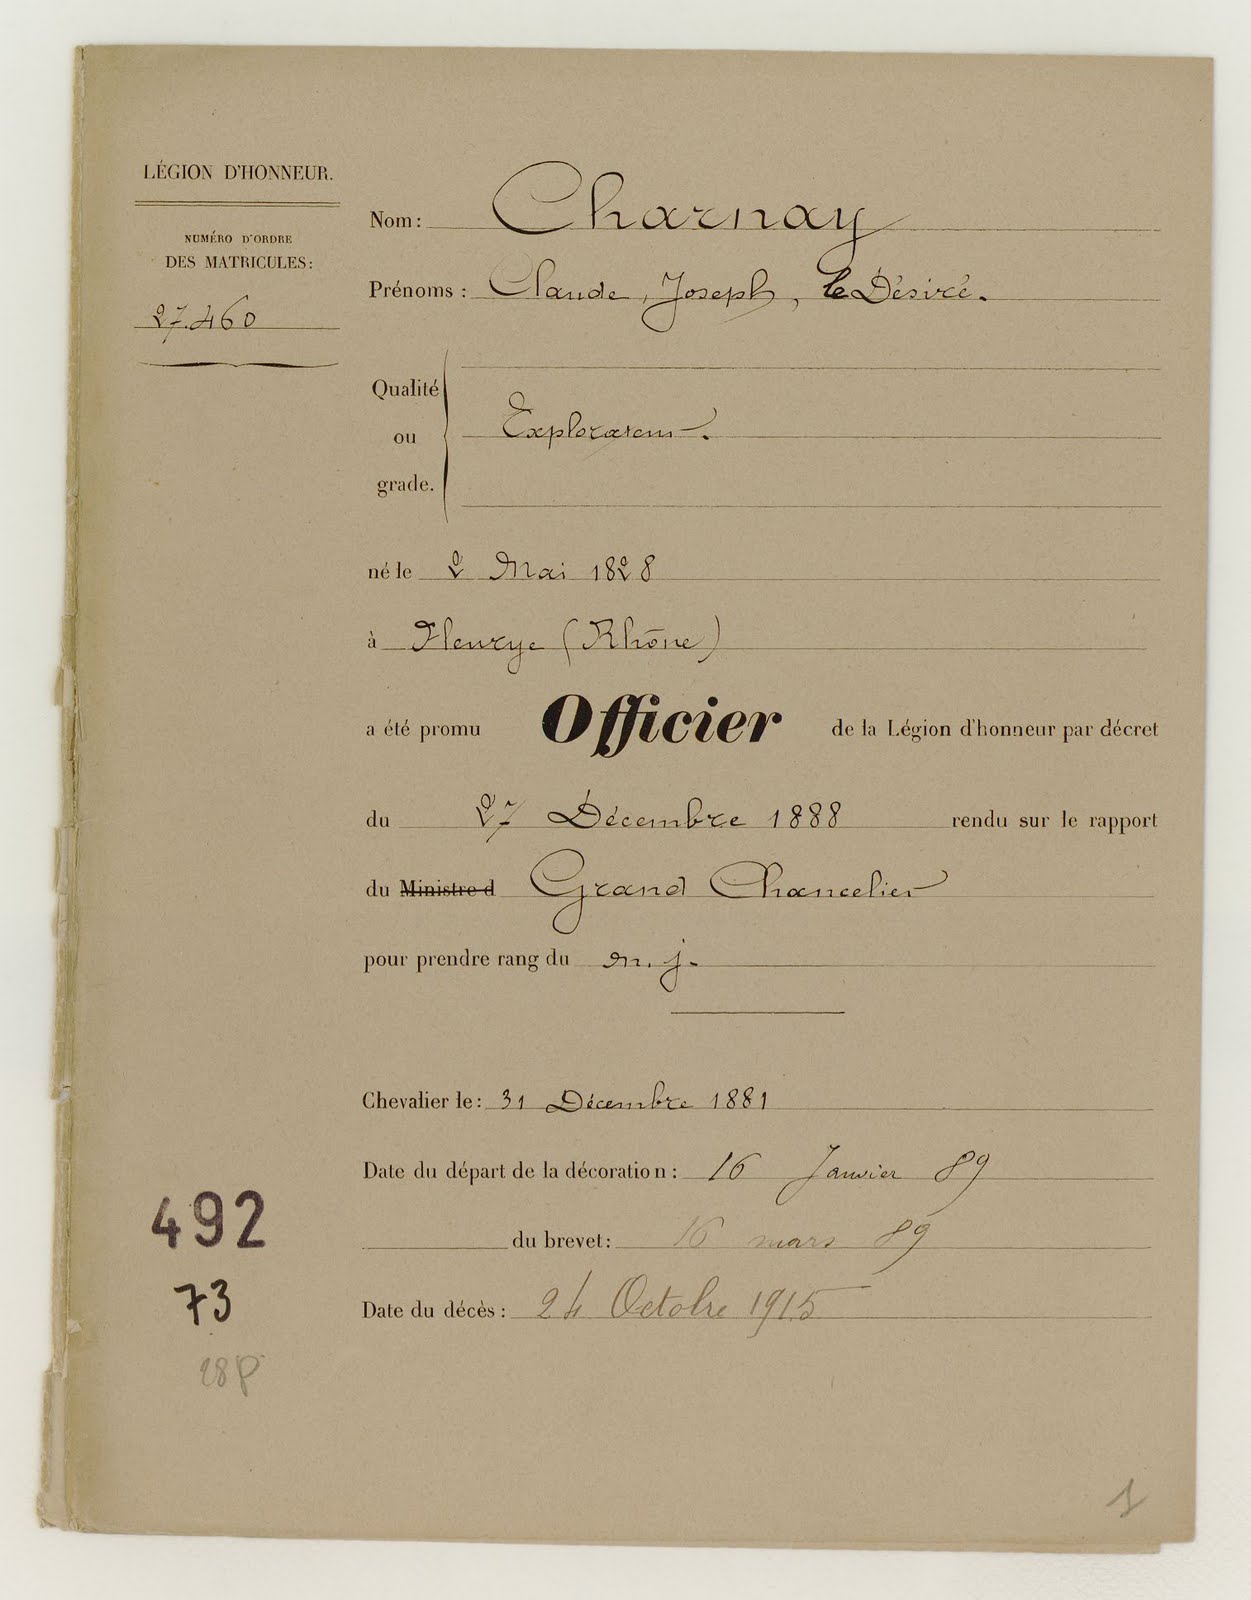 LÉGION D'HONNEUR.
NUMÉRO D'ORDRE
DES MATRICULES:
27.460
Nom: Charnay
Prénoms: Claude, Joseph, le Désiré.
Qualité
ou
grade.
Explorateur.
né le 2 Mai 1828
à Fleurye (Rhône)
a été promu Officier de la Légion d'honneur par décret
du 27 Décembre 1888 rendu sur le rapport
du Ministre d Grand Chancelier
pour prendre rang du m. j.
Chevalier le: 31 Décembre 1881
Date du départ de la décoration: 16 Janvier 89
du brevet: 16 mars 89
Date du décès: 24 Octobre 1915
492
73
28P
1